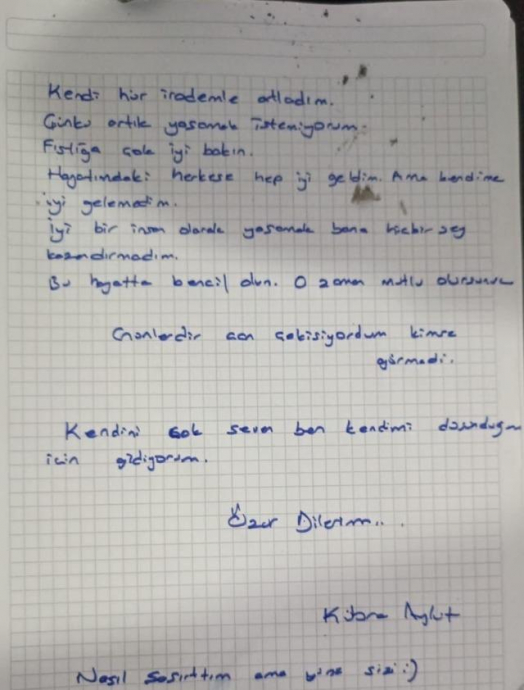 Kendi hür irademle atladım.
Çünkü artık yaşamak istemiyorum.
Fıstığa çok iyi bakın.
Hayatımdaki herkese hep iyi geldim. Ama kendime
iyi gelemedim.
İyi bir insan olarak yaşamak bana hiçbir şey
kazandırmadım.
Bu hayatta bencil olun. O zaman mutlu olursunuz
Günlerdir can çekişiyordum kimse
görmedi.
Kendini çok seven ben kendimi
için gidiyorum.
Özür Dilerim...
Kübra Aylut
Nasıl şaşırttım ama yine sizi :)